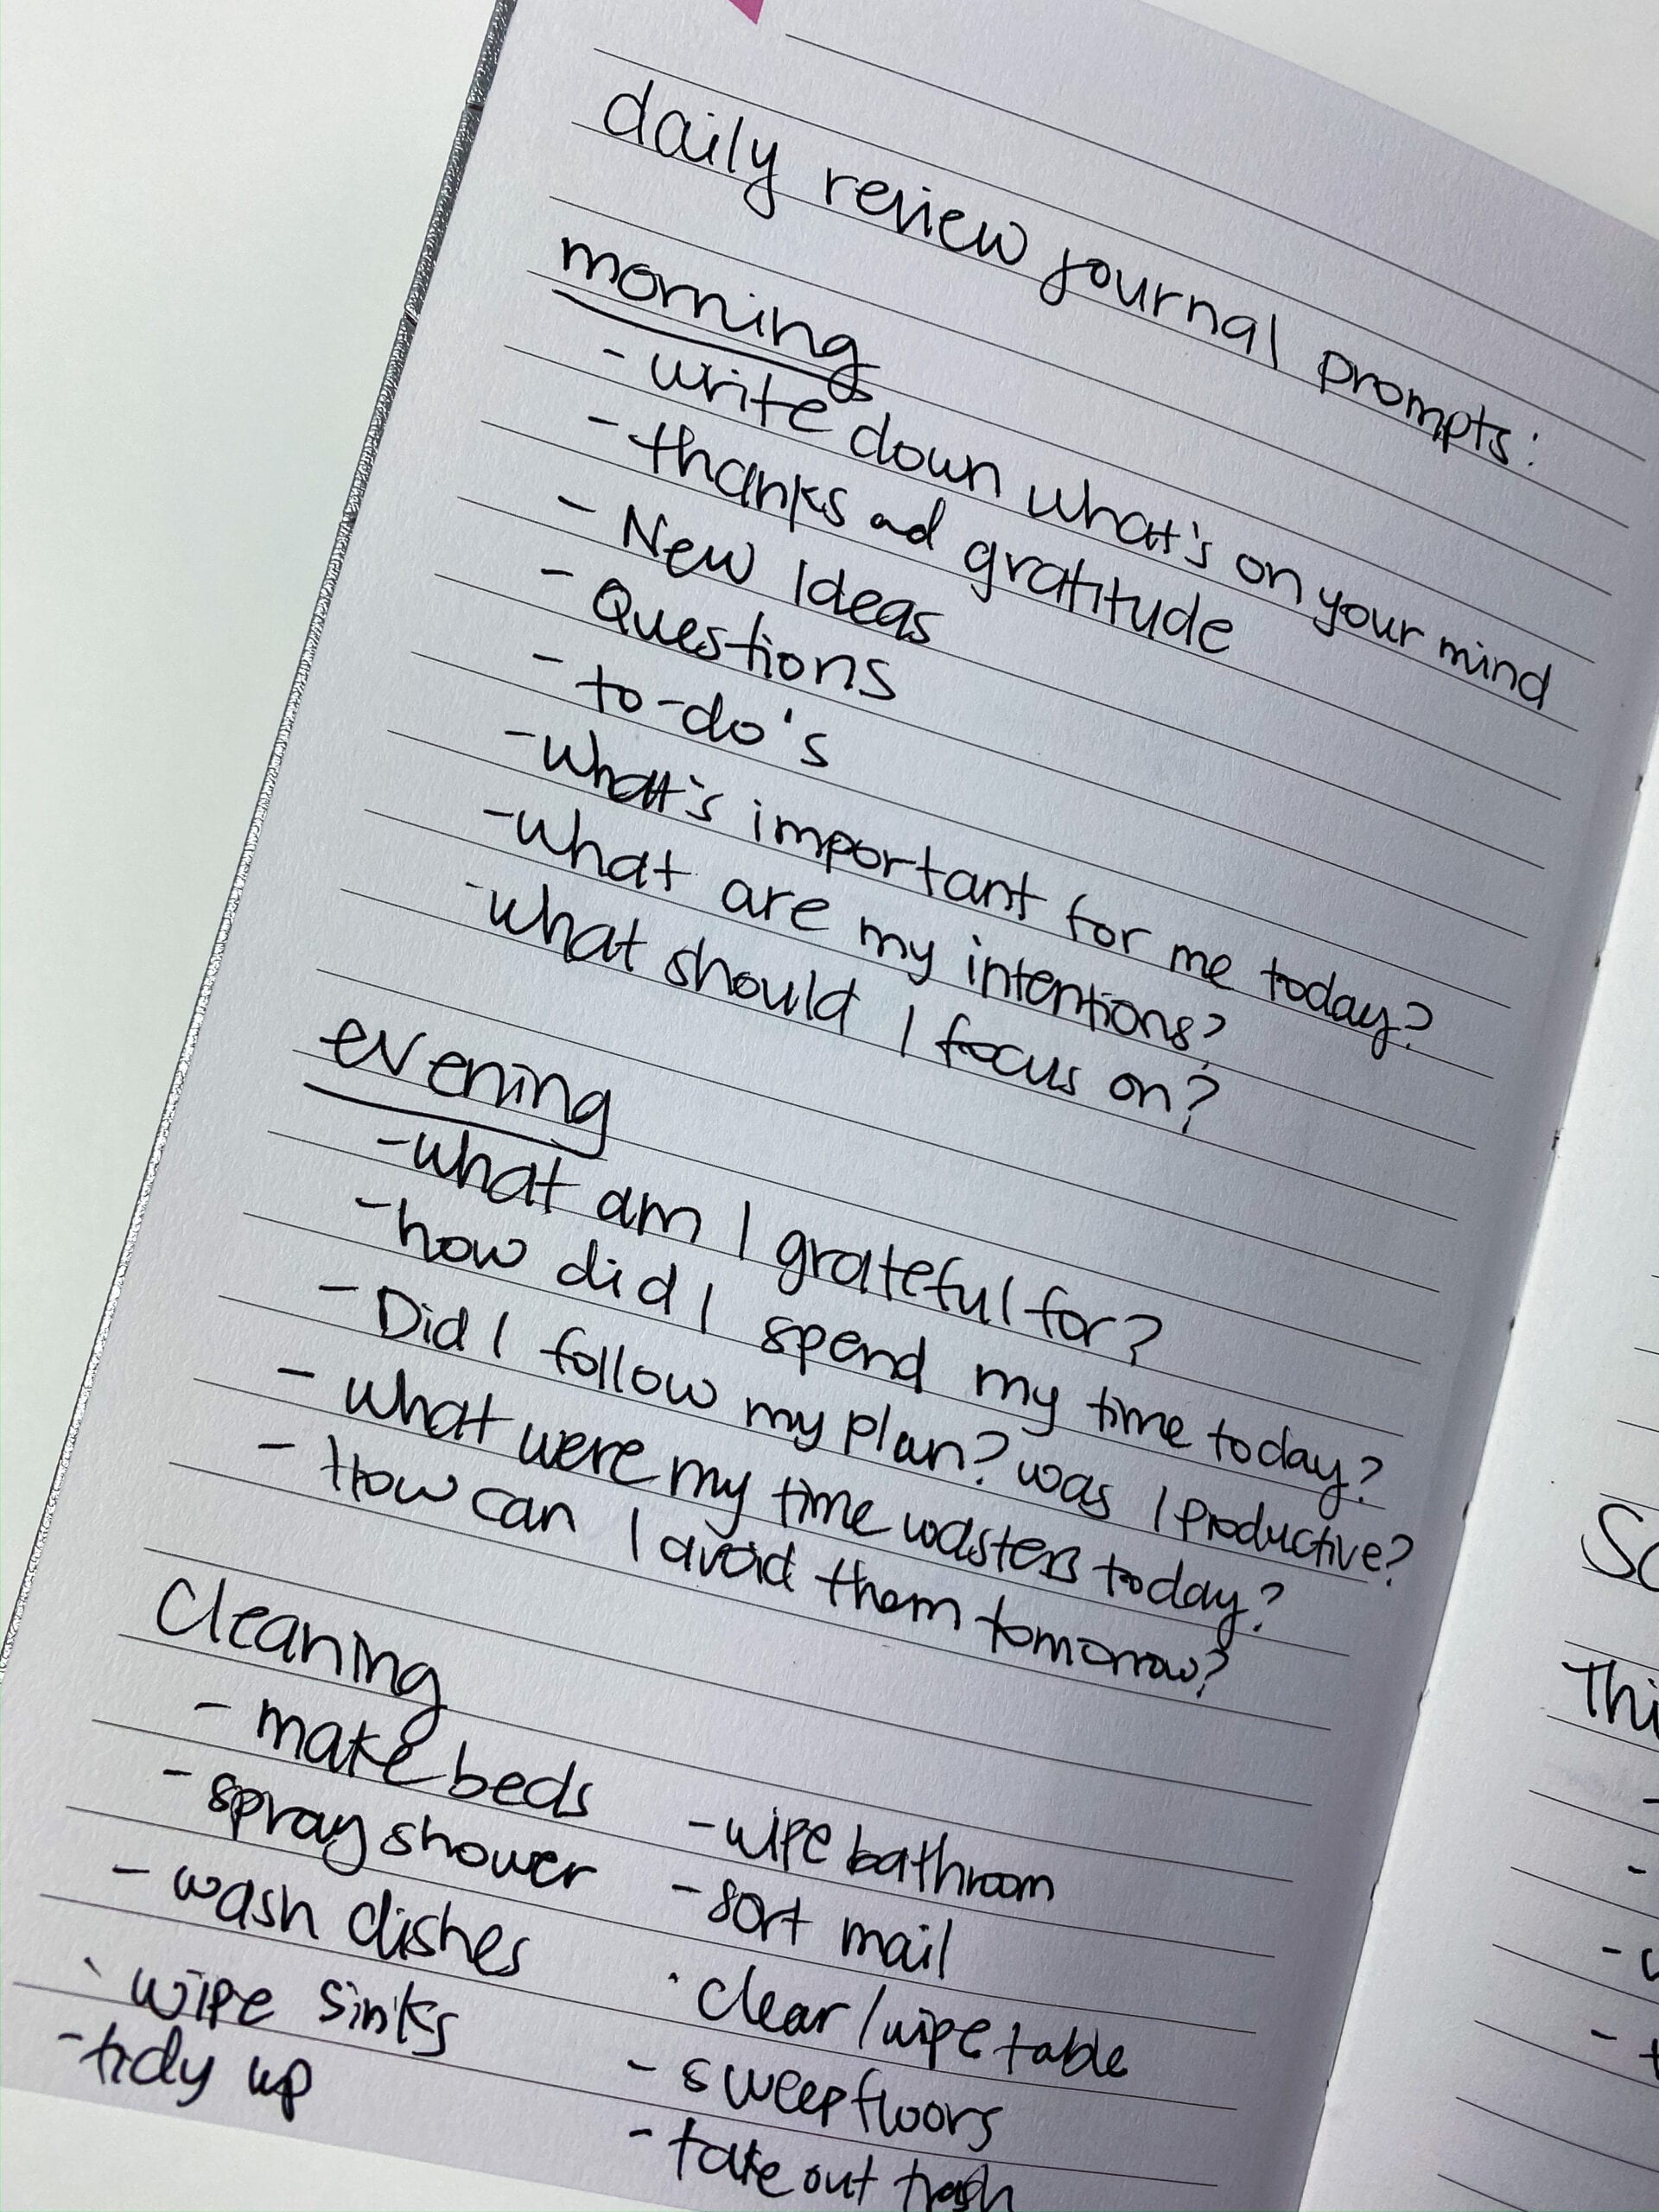 daily review journal prompts:
morning
- write down what's on your mind
- thanks and gratitude
- New Ideas
- Questions
- to-do's
- what's important for me today?
- what are my intentions?
- what should I focus on?
evening
- what am I grateful for?
- how did I spend my time today?
- Did I follow my plan? was I productive?
- what were my time wasters today?
- How can I avoid them tomorrow?
Cleaning
- make beds
- spray shower
- wash dishes
- wipe sinks
- tidy up
- wipe bathroom
- sort mail
- clear/wipe table
- sweep floors
- take out trash